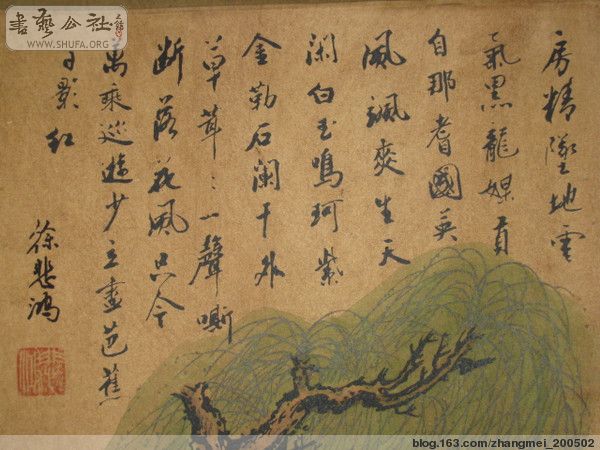 書藝公社
WWW.SHUFA.ORG
房精墜地雲
氣黑龍媒貢
自那耆國英
風颯爽生天
閑白玉鳴珂紫
金勒石闌干外
草茸〻一聲嘶
断落花風只今
萬乘巡遊少立盡芭蕉
日影紅
徐悲鴻
blog.163.com/zhangmei_200502